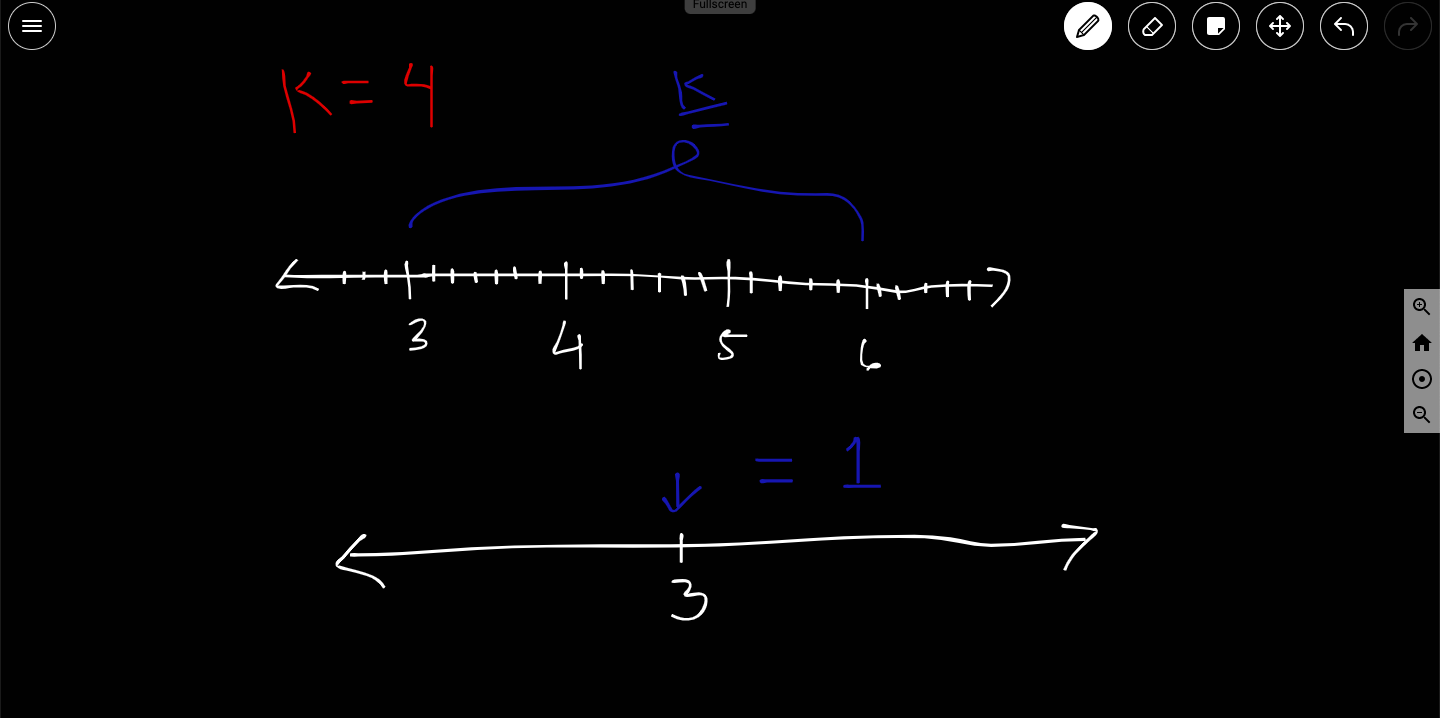 Fullscreen
K = 4
K
3 4 5 6
= 1
3